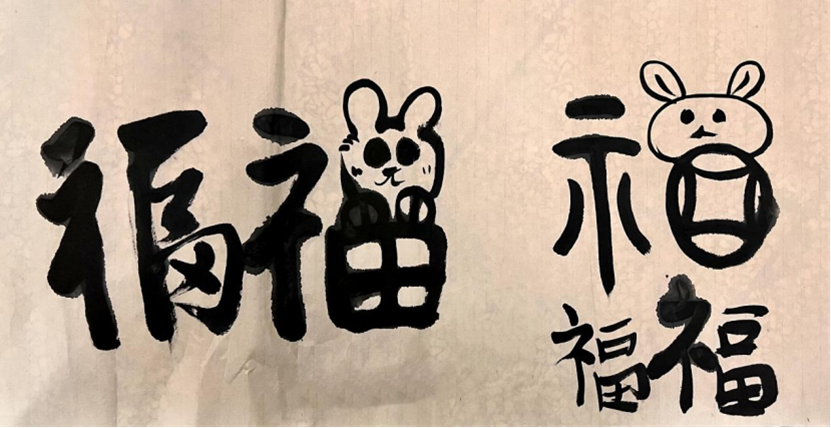 福福 福
福福